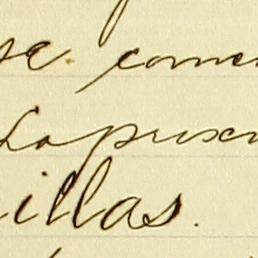 se. comen
La prisen
illas.